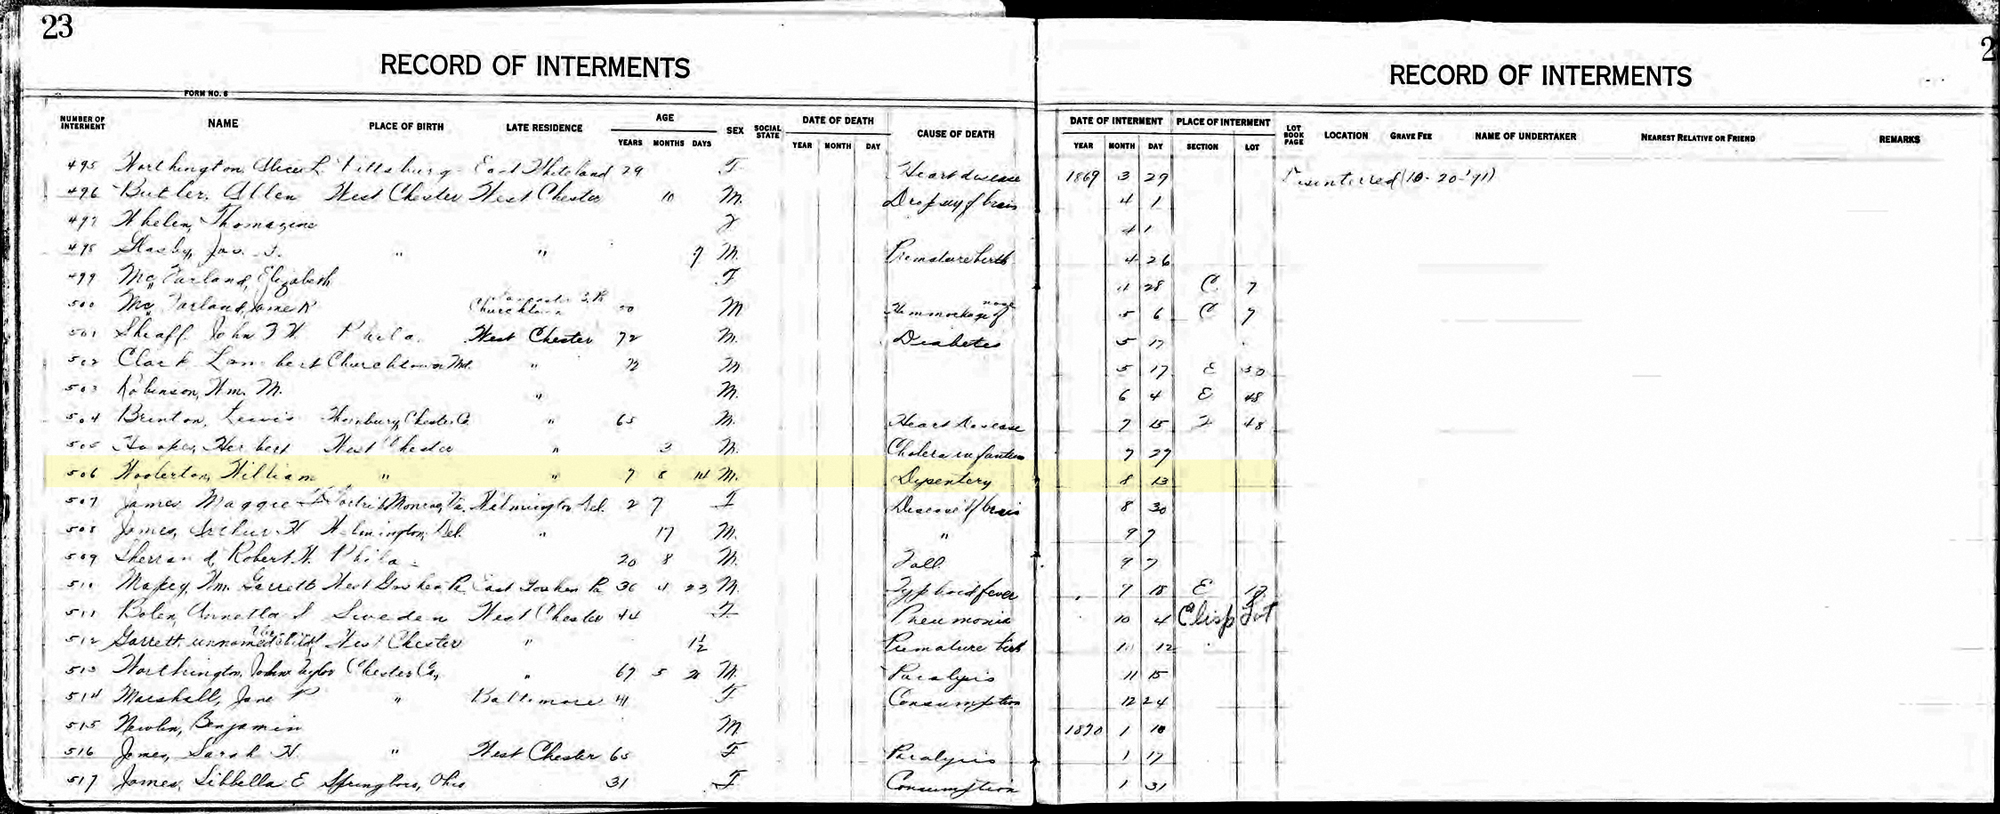 23
2
RECORD OF INTERMENTS
RECORD OF INTERMENTS
FORM NO. 8
NUMBER OF INTERMENT NAME PLACE OF BIRTH LATE RESIDENCE AGE YEARS MONTHS DAYS SEX SOCIAL STATE DATE OF DEATH YEAR MONTH DAY CAUSE OF DEATH DATE OF INTERMENT YEAR MONTH DAY PLACE OF INTERMENT SECTION LOT LOT BOOK PAGE LOCATION GRAVE FEE NAME OF UNDERTAKER NEAREST RELATIVE OR FRIEND REMARKS
495 Worthington, Alice L. Pittsburg East Whiteland 29 F Heart disease 1869 3 29 Disinterred (10-20-'91)
496 Butler, Allen West Chester West Chester 10 M. Dropsy of brain 4 1
497 Whelen, Thomazine F 4 1
498 Jas. " " 7 M. Premature birth 4 26
499 McFarland, Elizabeth F 4 28 C 7
500 McFarland, James R Lancaster Churchtown M Hemmorhage of nose 5 6 C 7
501 Sheaff, John F. W. Phila. West Chester 72 M. Diabetes 5 17
502 Clark Lambert Churchtown Md. " M. 5 17 E 50
503 Robinson, Wm. M. " M. 6 4 E 48
504 Brinton, Lewis Thornbury, Chester Co " 65 M. Heart Disease 7 15 48
505 Hooper, Herbert West Chester " 3 M. Cholera infantum 7 27
506 Wollerton, William " " 7 8 14 M. Dysentery 8 13
507 James, Maggie Wilmington Del. 2 7 F Disease of brain 8 30
508 James, Arthur H Wilmington, Del. " 17 M. " 9 7
509 Sherrard, Robert H. Phila. 20 8 M. Fall 9 7
510 Wm. Garrett West Goshen Pa. East Goshen Pa 36 4 23 M. Typhoid fever 9 18 E
511 Annetta S Sweden West Chester 44 F Pneumonia 10 4 Lot
512 Garrett, unnamed child West Chester " 1½ Premature birth 12
513 Worthington, John Taylor Chester Co, " 67 5 M. Paralysis 11 15
514 Marshall, Jane P " Baltimore 41 F Consumption 12 24
515 Newlin, Benjamin M 1870 1 10
516 James, Sarah H. " West Chester 65 F Paralysis 1 17
517 James, Sibbella E Ohio 31 F Consumption 1 31